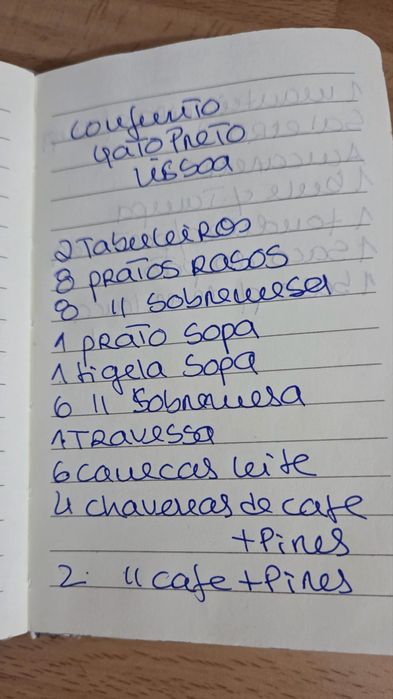 conjunto
Gato Preto
Lisboa
2 Tabuleiros
8 pratos Rasos
8 11 Sobremesa
1 prato Sopa
1 tigela Sopa
6 11 Sobremesa
1 Travessa
6 canecas leite
4 chavenas de cafe
+ Pires
2. 11 cafe + Pires